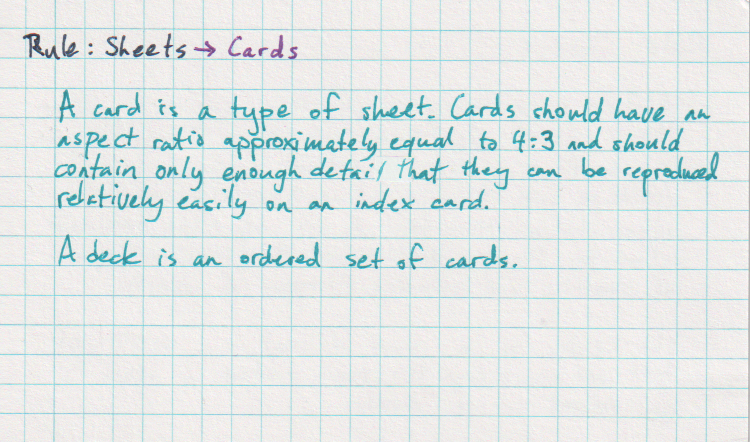 Rule: Sheets → Cards
A card is a type of sheet. Cards should have an
aspect ratio approximately equal to 4:3 and should
contain only enough detail that they can be reproduced
relatively easily on an index card.
A deck is an ordered set of cards.